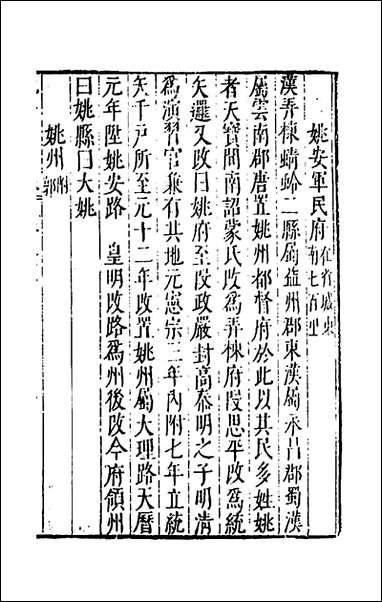 姚安軍民府在省城東南七百里
漢弄棟蜻蛉二縣屬益州郡東漢屬永昌郡蜀漢
屬雲南郡唐置姚州都督府於此以其民多姓姚
者天寶間南詔蒙氏改為弄棟府段思平改為統
矢邏又改曰姚府至段政嚴封高泰明之子明清
為演習官兼有其地元憲宗三年內附七年立統
矢千戶所至元十二年改置姚州屬大理路天曆
元年陞姚安路　皇明改路為州後改今府領州
曰姚縣曰大姚
姚州附郭